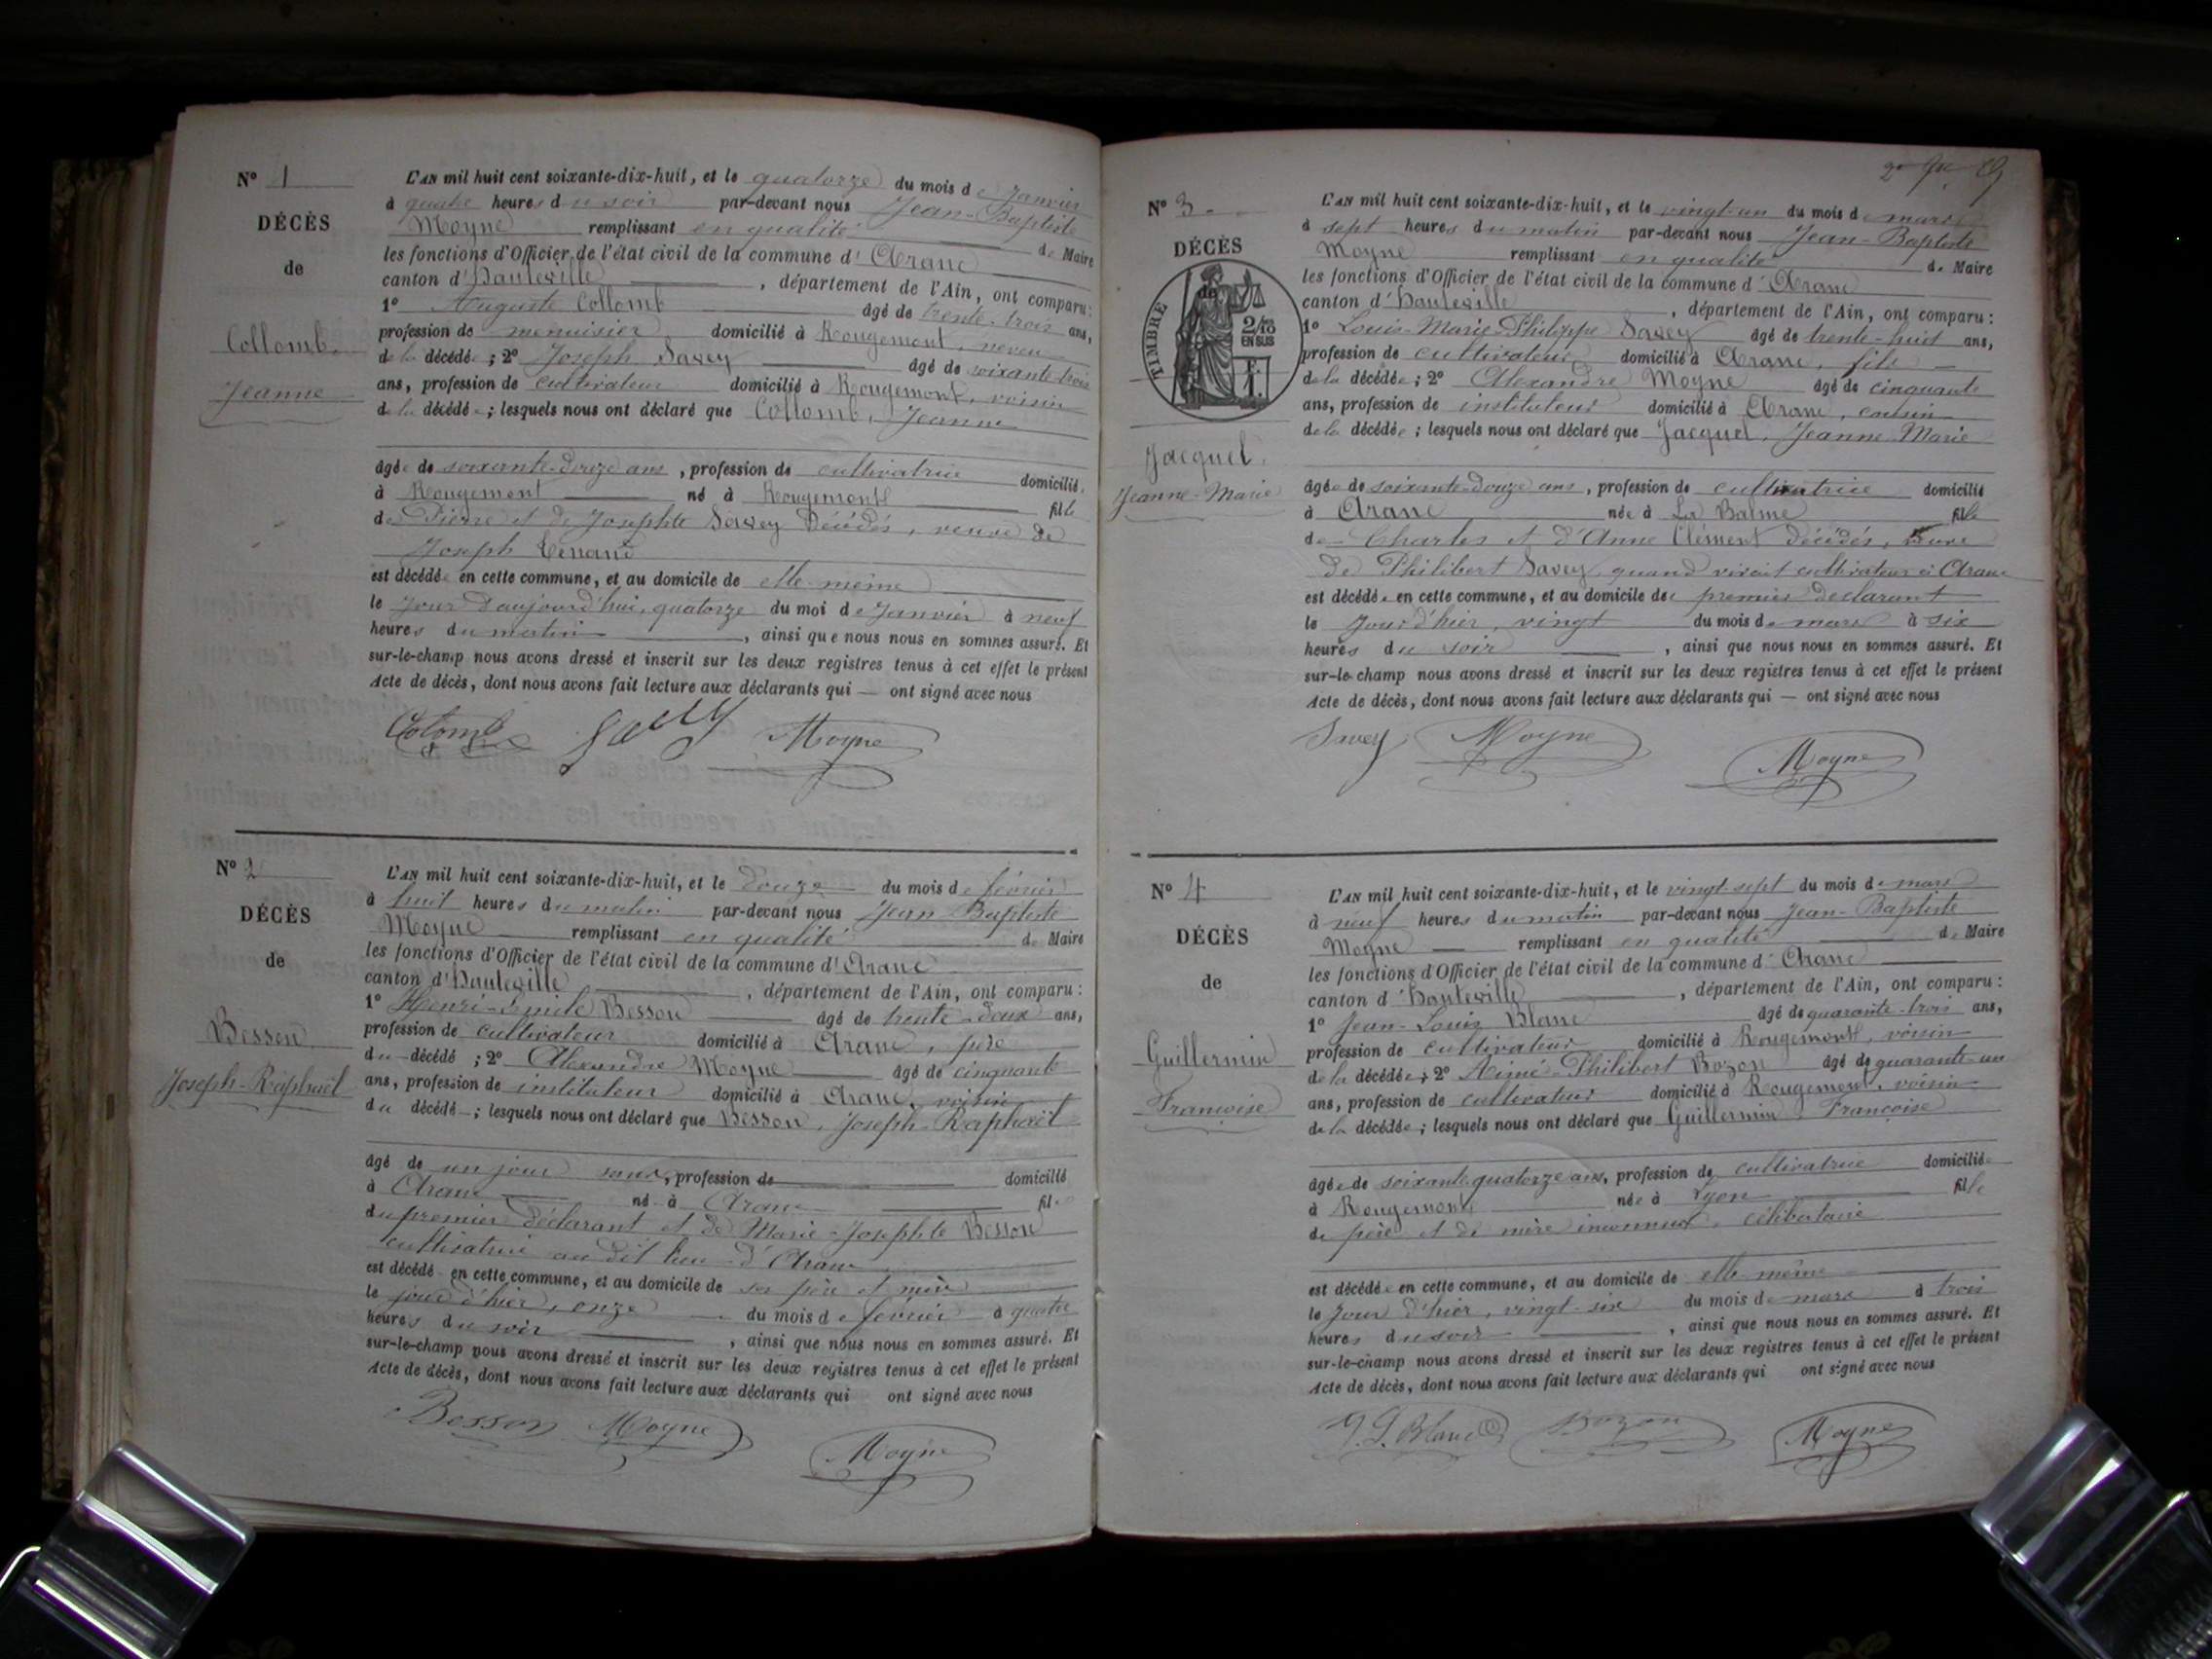 N° 1
DÉCÈS
de
Collomb
Jeanne
L'AN mil huit cent soixante-dix-huit, et le quatorze du mois de Janvier
à quatre heures du soir par-devant nous Jean-Baptiste
Moyne remplissant en qualité de Maire
les fonctions d'Officier de l'état civil de la commune d'Aranc
canton d'Hauteville, département de l'Ain, ont comparu :
1° Auguste Collomb âgé de trente-trois ans,
profession de menuisier domicilié à Rougemont, neveu
de la décédée ; 2° Joseph Savey âgé de soixante-trois
ans, profession de cultivateur domicilié à Rougemont, voisin
de la décédée ; lesquels nous ont déclaré que Collomb, Jeanne
âgée de soixante-douze ans, profession de cultivatrice domicilié
à Rougemont né à Rougemont fille
de Pierre et de Josephte Savey décédés, veuve de
Joseph
est décédée en cette commune, et au domicile de elle-même
le jour d'aujourd'hui, quatorze du moi de Janvier à neuf
heures du matin, ainsi que nous nous en sommes assuré. Et
sur-le-champ nous avons dressé et inscrit sur les deux registres tenus à cet effet le présent
Acte de décès, dont nous avons fait lecture aux déclarants qui — ont signé avec nous
Colomb Savey Moyne
N° 2
DÉCÈS
de
Besson
Joseph-Raphaël
L'AN mil huit cent soixante-dix-huit, et le douze du mois de février
à huit heures du matin par-devant nous Jean-Baptiste
Moyne remplissant en qualité de Maire
les fonctions d'Officier de l'état civil de la commune d'Aranc
canton d'Hauteville, département de l'Ain, ont comparu :
1° Henri-Emile Besson âgé de trente-deux ans,
profession de cultivateur domicilié à Aranc, père
du décédé ; 2° Alexandre Moyne âgé de cinquante
ans, profession de instituteur domicilié à Aranc, voisin
du décédé ; lesquels nous ont déclaré que Besson, Joseph-Raphaël
âgé de un jour sans, profession de domicilié
à Aranc né à Aranc fils
du premier déclarant et de Marie-Josephte Besson
cultivatrice au dit lieu d'Aranc
est décédé en cette commune, et au domicile de ses père et mère
le jour d'hier, onze du mois de février à quatre
heures du soir, ainsi que nous nous en sommes assuré. Et
sur-le-champ nous avons dressé et inscrit sur les deux registres tenus à cet effet le présent
Acte de décès, dont nous avons fait lecture aux déclarants qui ont signé avec nous
Besson Moyne
Moyne
N° 3
DÉCÈS
de
TIMBRE
2/10 EN SUS
Jacquet
Jeanne-Marie
L'AN mil huit cent soixante-dix-huit, et le vingt-un du mois de mars
à sept heures du matin par-devant nous Jean-Baptiste
Moyne remplissant en qualité de Maire
les fonctions d'Officier de l'état civil de la commune d'Aranc
canton d'Hauteville, département de l'Ain, ont comparu :
1° Louis-Marie-Philippe Savey âgé de trente-huit ans,
profession de cultivateur domicilié à Aranc, fils
de la décédée ; 2° Alexandre Moyne âgé de cinquante
ans, profession de instituteur domicilié à Aranc, cousin
de la décédée ; lesquels nous ont déclaré que Jacquet, Jeanne-Marie
âgée de soixante-douze ans, profession de cultivatrice domicilié
à Aranc née à La Balme fille
de Charles et d'Anne Clément décédés, veuve
de Philibert Savey, quand vivait cultivateur à Aranc
est décédée en cette commune, et au domicile du premier déclarant
le jour d'hier, vingt du mois de mars à six
heures du soir, ainsi que nous nous en sommes assuré. Et
sur-le-champ nous avons dressé et inscrit sur les deux registres tenus à cet effet le présent
Acte de décès, dont nous avons fait lecture aux déclarants qui — ont signé avec nous
Savey Moyne
Moyne
N° 4
DÉCÈS
de
Guillermin
Françoise
L'AN mil huit cent soixante-dix-huit, et le vingt-sept du mois de mars
à neuf heures du matin par-devant nous Jean-Baptiste
Moyne remplissant en qualité de Maire
les fonctions d'Officier de l'état civil de la commune d'Aranc
canton d'Hauteville, département de l'Ain, ont comparu :
1° Jean-Louis Blanc âgé de quarante-trois ans,
profession de cultivateur domicilié à Rougemont, voisin
de la décédée ; 2° Aimé-Philibert Bozon âgé de quarante-un
ans, profession de cultivateur domicilié à Rougemont, voisin
de la décédée ; lesquels nous ont déclaré que Guillermin, Françoise
âgée de soixante-quatorze ans, profession de cultivatrice domiciliée
à Rougemont née à Lyon fille
de père et de mère inconnus, célibataire
est décédée en cette commune, et au domicile de elle-même
le jour d'hier, vingt-six du mois de mars à trois
heures du soir, ainsi que nous nous en sommes assuré. Et
sur-le-champ nous avons dressé et inscrit sur les deux registres tenus à cet effet le présent
Acte de décès, dont nous avons fait lecture aux déclarants qui ont signé avec nous
J. L. Blanc Bozon Moyne